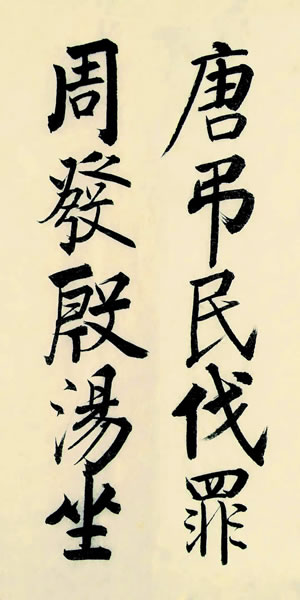 唐弔民伐罪
周發殷湯坐